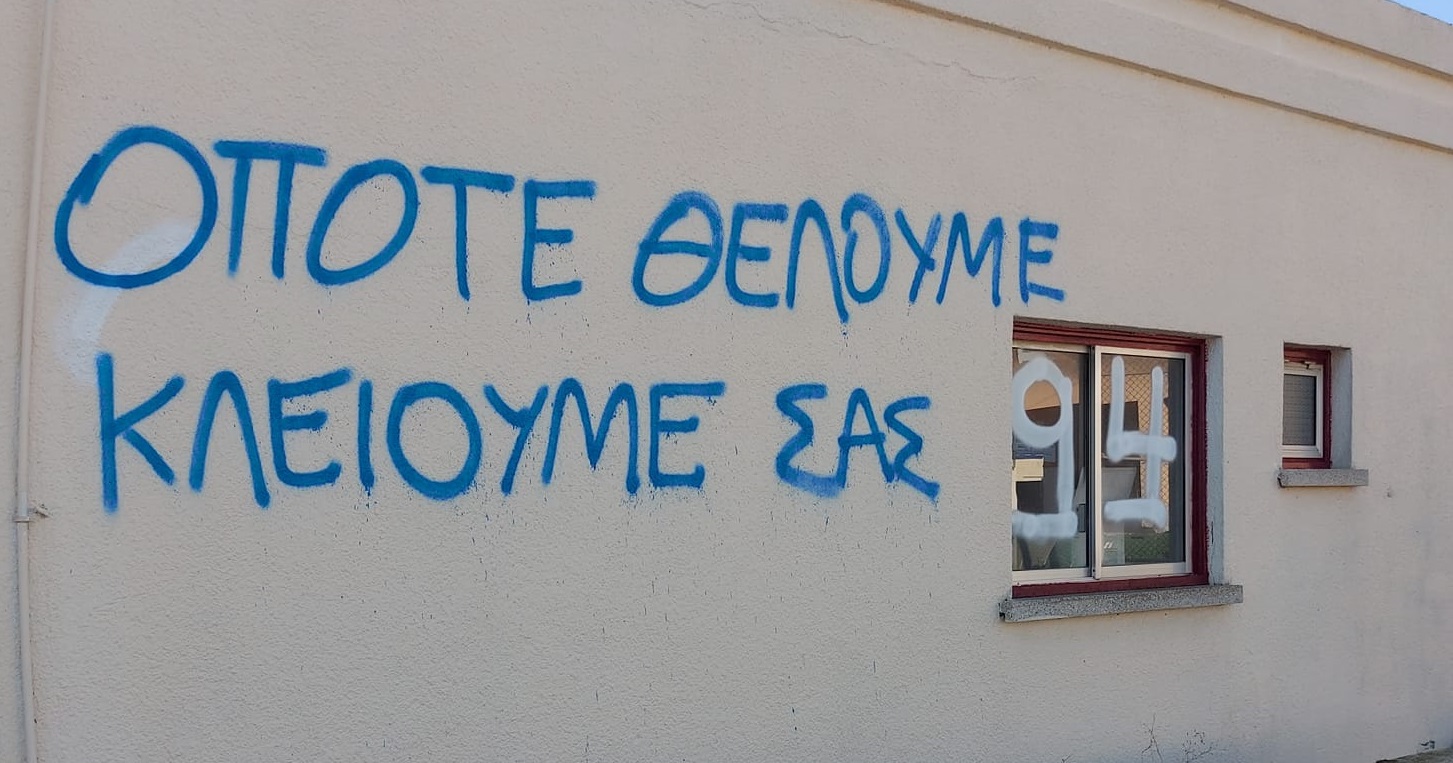 ΟΠΟΤΕ ΘΕΛΟΥΜΕ
ΚΛΕΙΟΥΜΕ ΣΑΣ
94